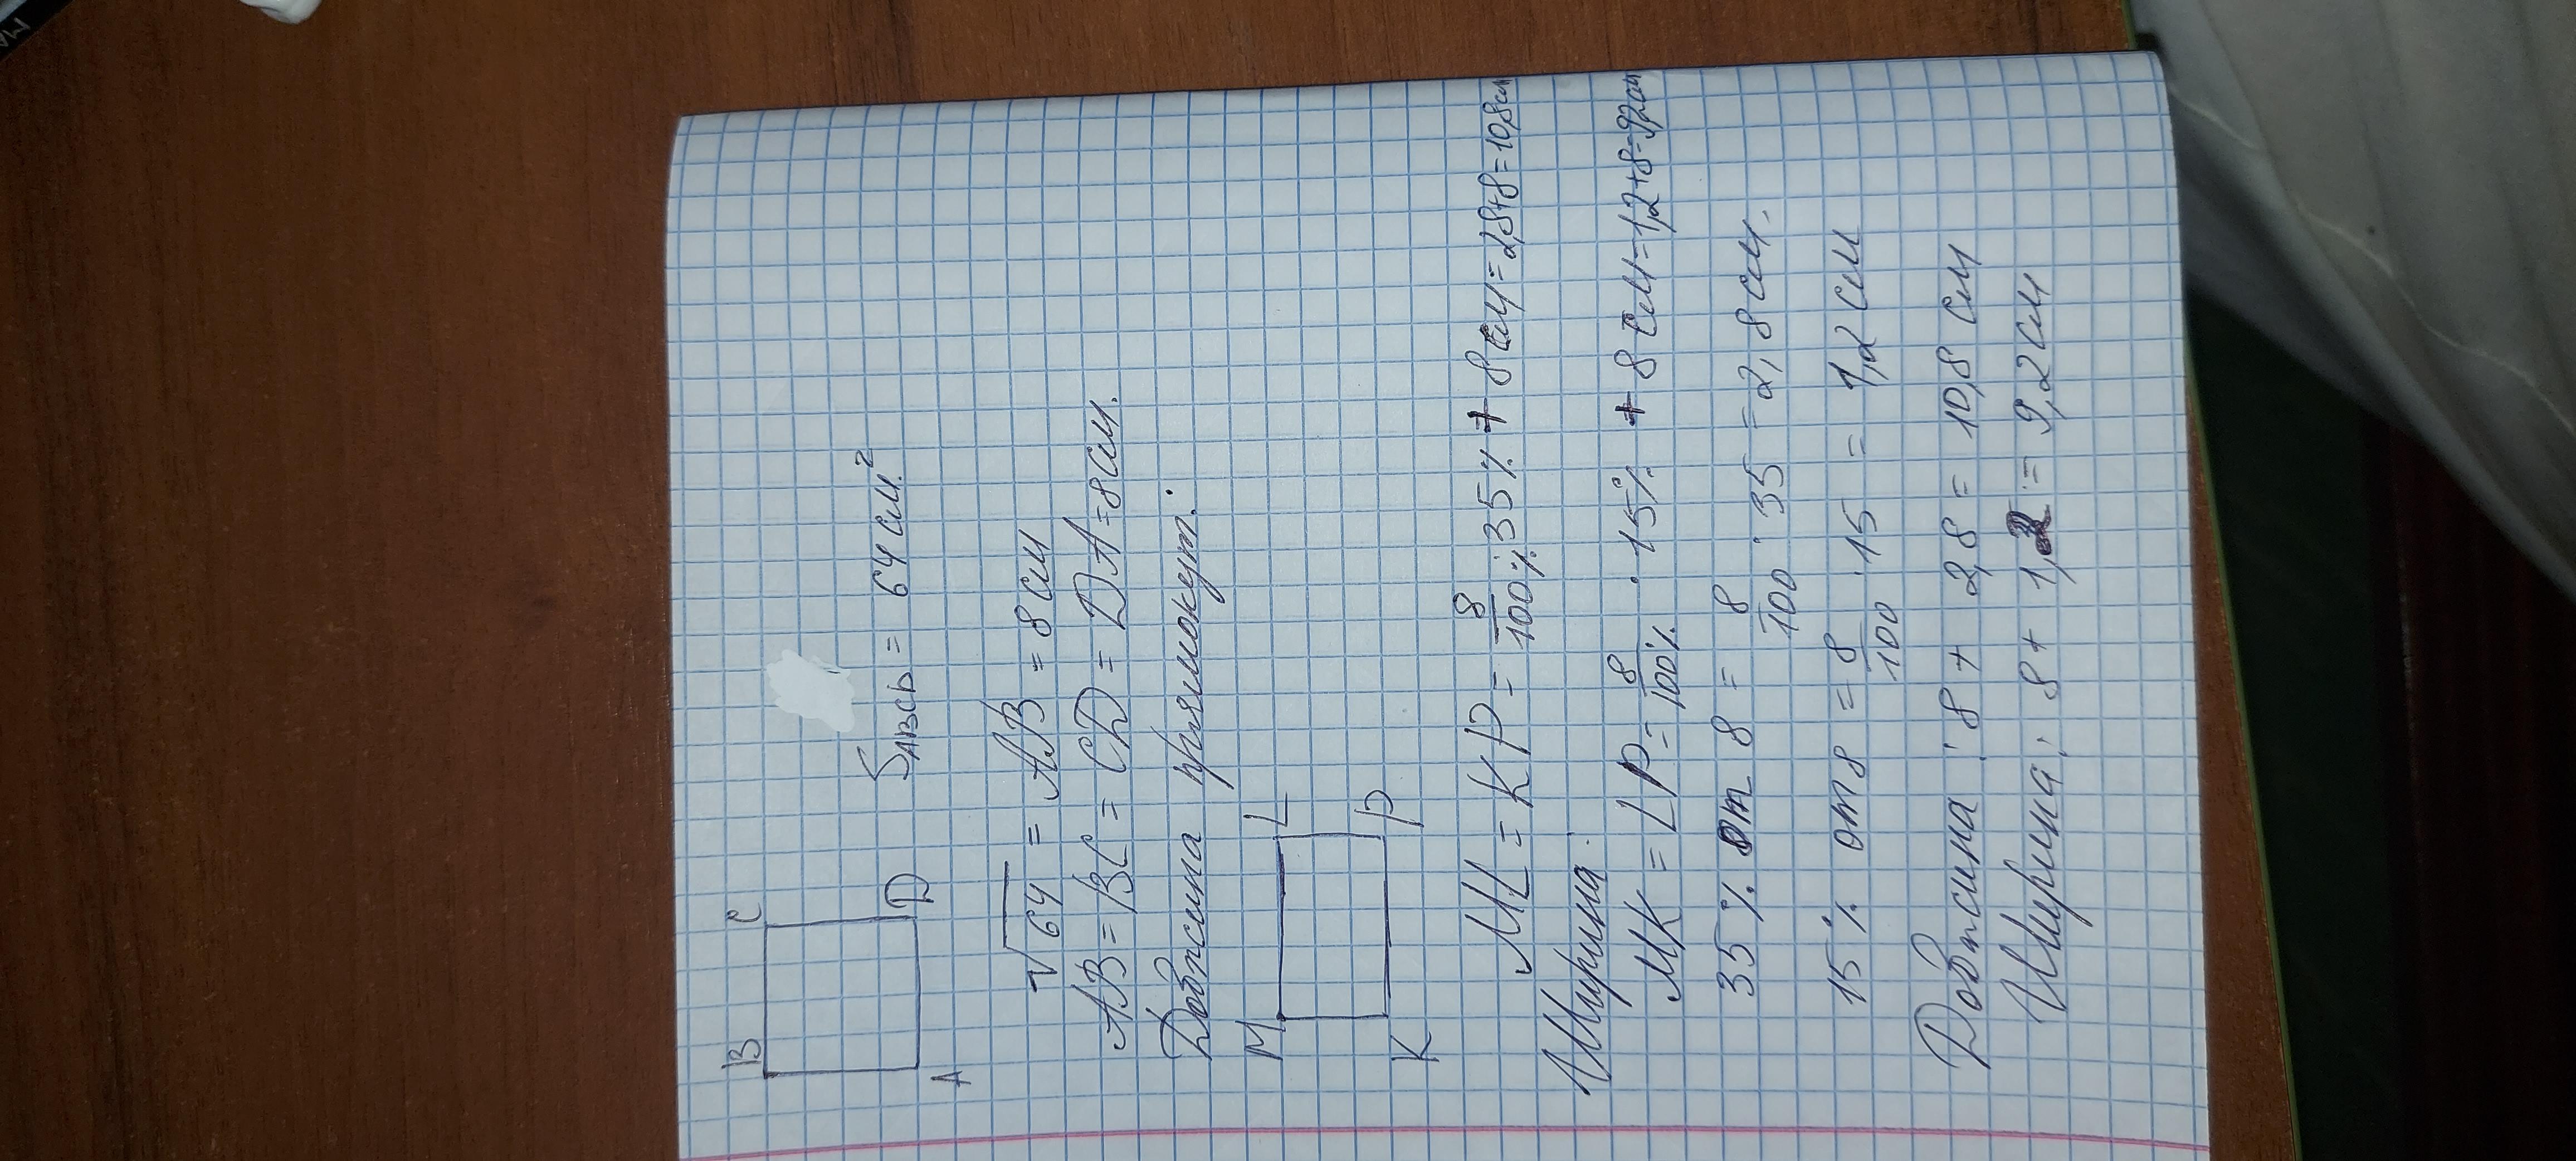 B C
A D
S ABCD = 64 см.²
√64 = AB = 8 см
AB = BC = CD = DA = 8 см.
Довжина прямокут.:
M L
K P
ML = KP = 8/100% · 35% + 8 см = 2,8+8 = 10,8 см
Ширина:
MK = LP = 8/100% · 15% + 8 см = 1,2+8 = 9,2 см
35% от 8 = 8/100 · 35 = 2,8 см.
15% от 8 = 8/100 · 15 = 1,2 см
Довжина: 8 + 2,8 = 10,8 см
Ширина: 8 + 1,2 = 9,2 см